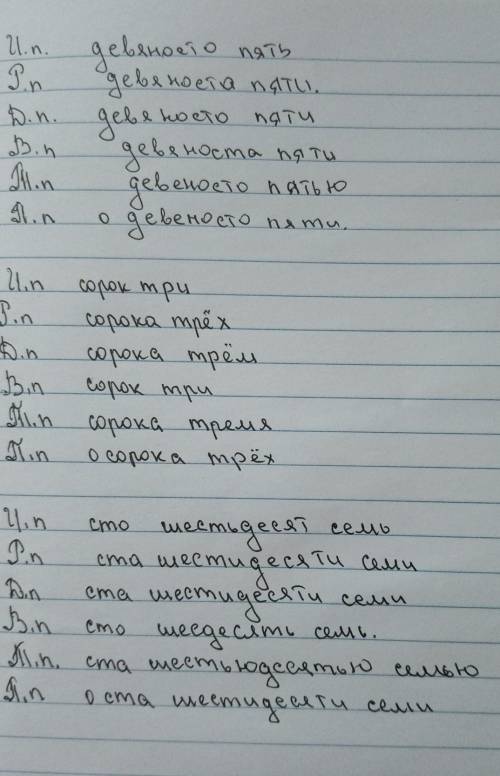 И.п. девяносто пять
Р.п девяноста пяти.
Д.п. девяносто пяти
В.п девяноста пяти
Т.п девеносто пятью
П.п о девеносто пяти.
И.п сорок три
Р.п сорока трёх
Д.п сорока трём
В.п сорок три
Т.п сорока тремя
П.п о сорока трёх
И.п сто шестьдесят семь
Р.п ста шестидесяти семи
Д.п ста шестидесяти семи
В.п сто шесдесять семь.
Т.п. ста шестьюдесятью семью
П.п о ста шестидесяти семи